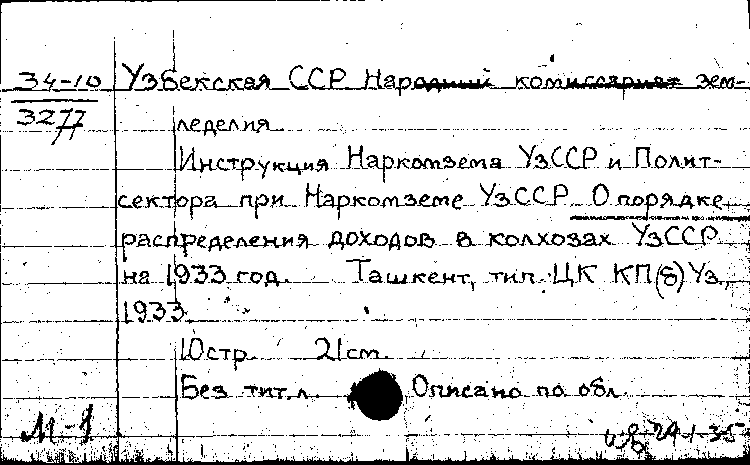 34-10 Узбекская ССР Народный комиссариат зем-
3277
леделия
Инструкция Наркомзема УзССР и Полит-
сектора при Наркомземе УзССР О порядке
распределения доходов в колхозах УзССР
на 1933 год. Ташкент, тип. ЦК КП(б)Уз.,
1933.
10стр. 21см.
Без тит.л. Описано по обл.
М-1
24-1-35